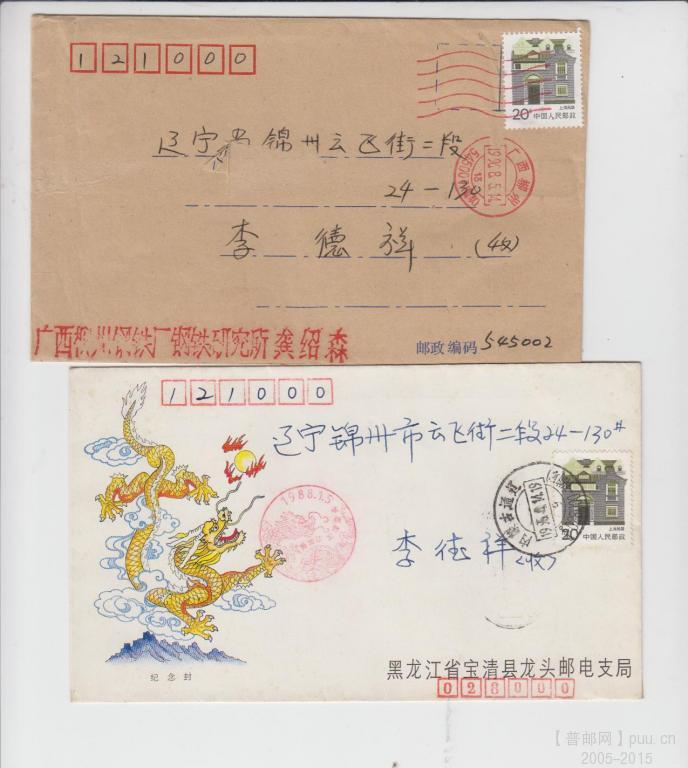 121000
20 中国人民邮政
上海民居
辽宁省锦州云飞街二段
24-130
李德祥 (收)
广西柳州
545100
广西柳州钢铁厂钢铁研究所 龚绍森
邮政编码 545002
121000
辽宁锦州市云飞街二段24-130#
1988.1.5
内蒙古通辽
20 中国人民邮政
上海民居
李德祥(收)
纪念封
黑龙江省宝清县龙头邮电支局
028000
【普邮网】puu.cn
2005-2015